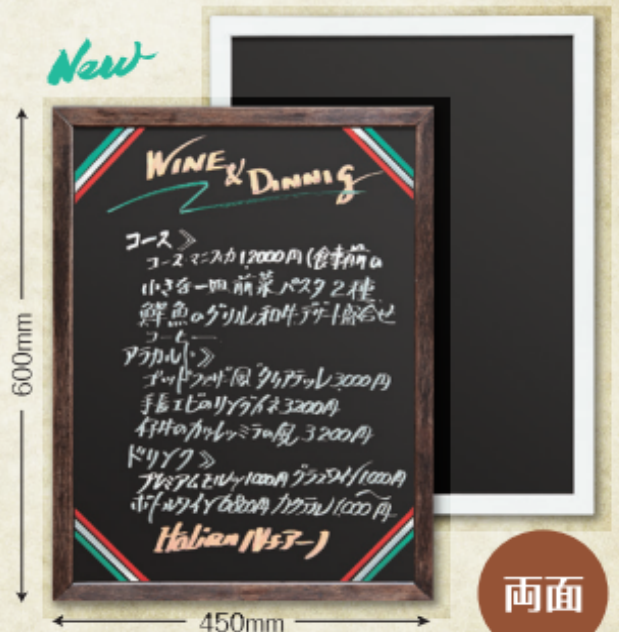 New
WINE & DINNIG
コース》
コースマニフィカ12000円(食事前の
小さな一皿 前菜 パスタ2種
鮮魚のグリル 和牛 デザート盛合せ
コーヒー
アラカルト》
ゴッドファザー風 タリアテッレ 3000円
手長エビのリングイネ 3200円
仔牛のカツレツ ミラノ風 3200円
ドリンク》
プレミアムモルツ 1000円 グラスワイン 1000円
ボトルワイン 6800円 カクテル 1000円〜
Italian
600mm
450mm
両面